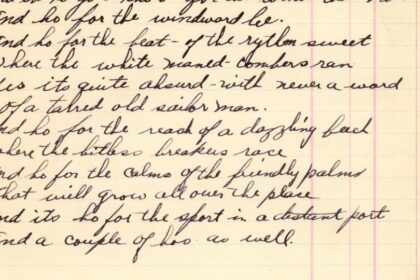 and ho for the windward lee.
and ho for the beat - of the rythm sweet
where the white maned - combers ran
its quite absurd - with never a word
of a tarred old sailor man.
and ho for the reach of a dazzling beach
where the bitless breakers race
and ho for the calms of the friendly palms
that will grow all over the place
and its ho for the sport in a distant port
and a couple of hos as well.